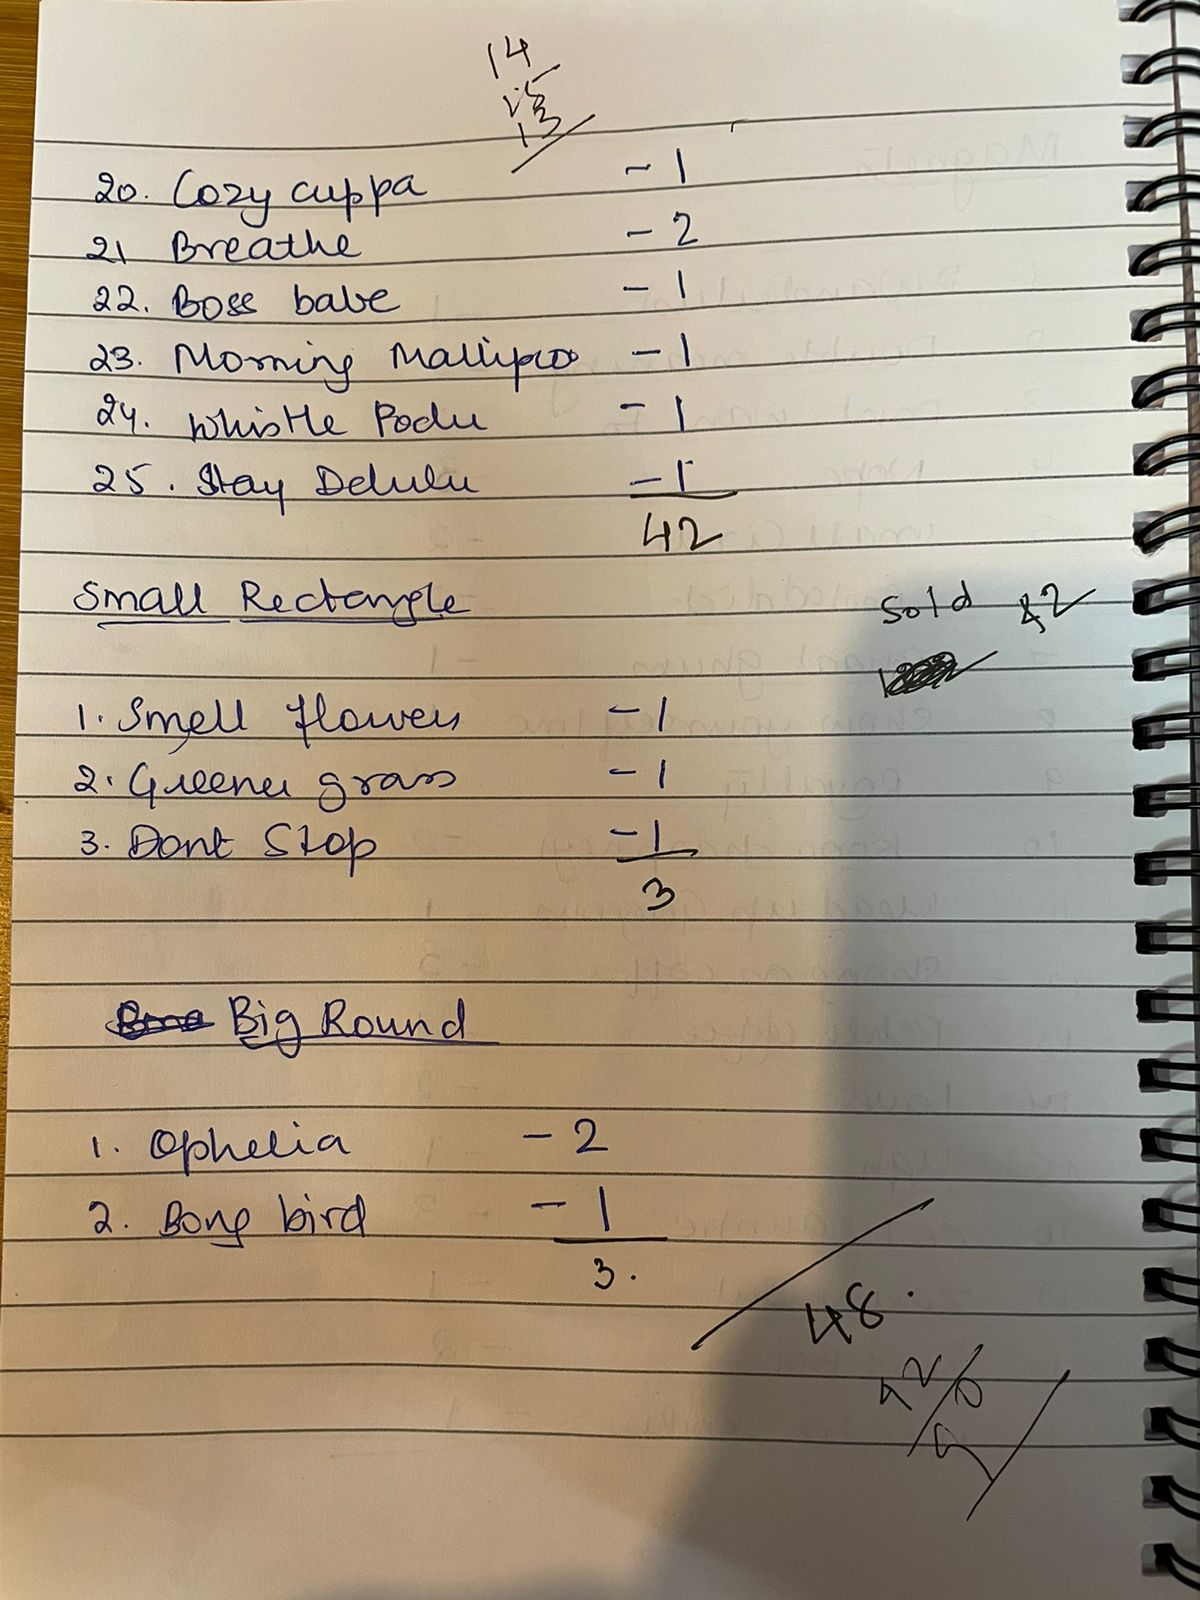 14
15
13
20. Cozy cuppa - 1
21 Breathe - 2
22. Boss babe - 1
23. Morning Mallipoo - 1
24. Whistle Podu - 1
25. Stay Delulu - 1
42
Small Rectangle
Sold 42
1. Smell flowers - 1
2. Greener grass - 1
3. Dont Stop - 1
3
Big Round
1. Ophelia - 2
2. Bong bird - 1
3.
48.
42
90